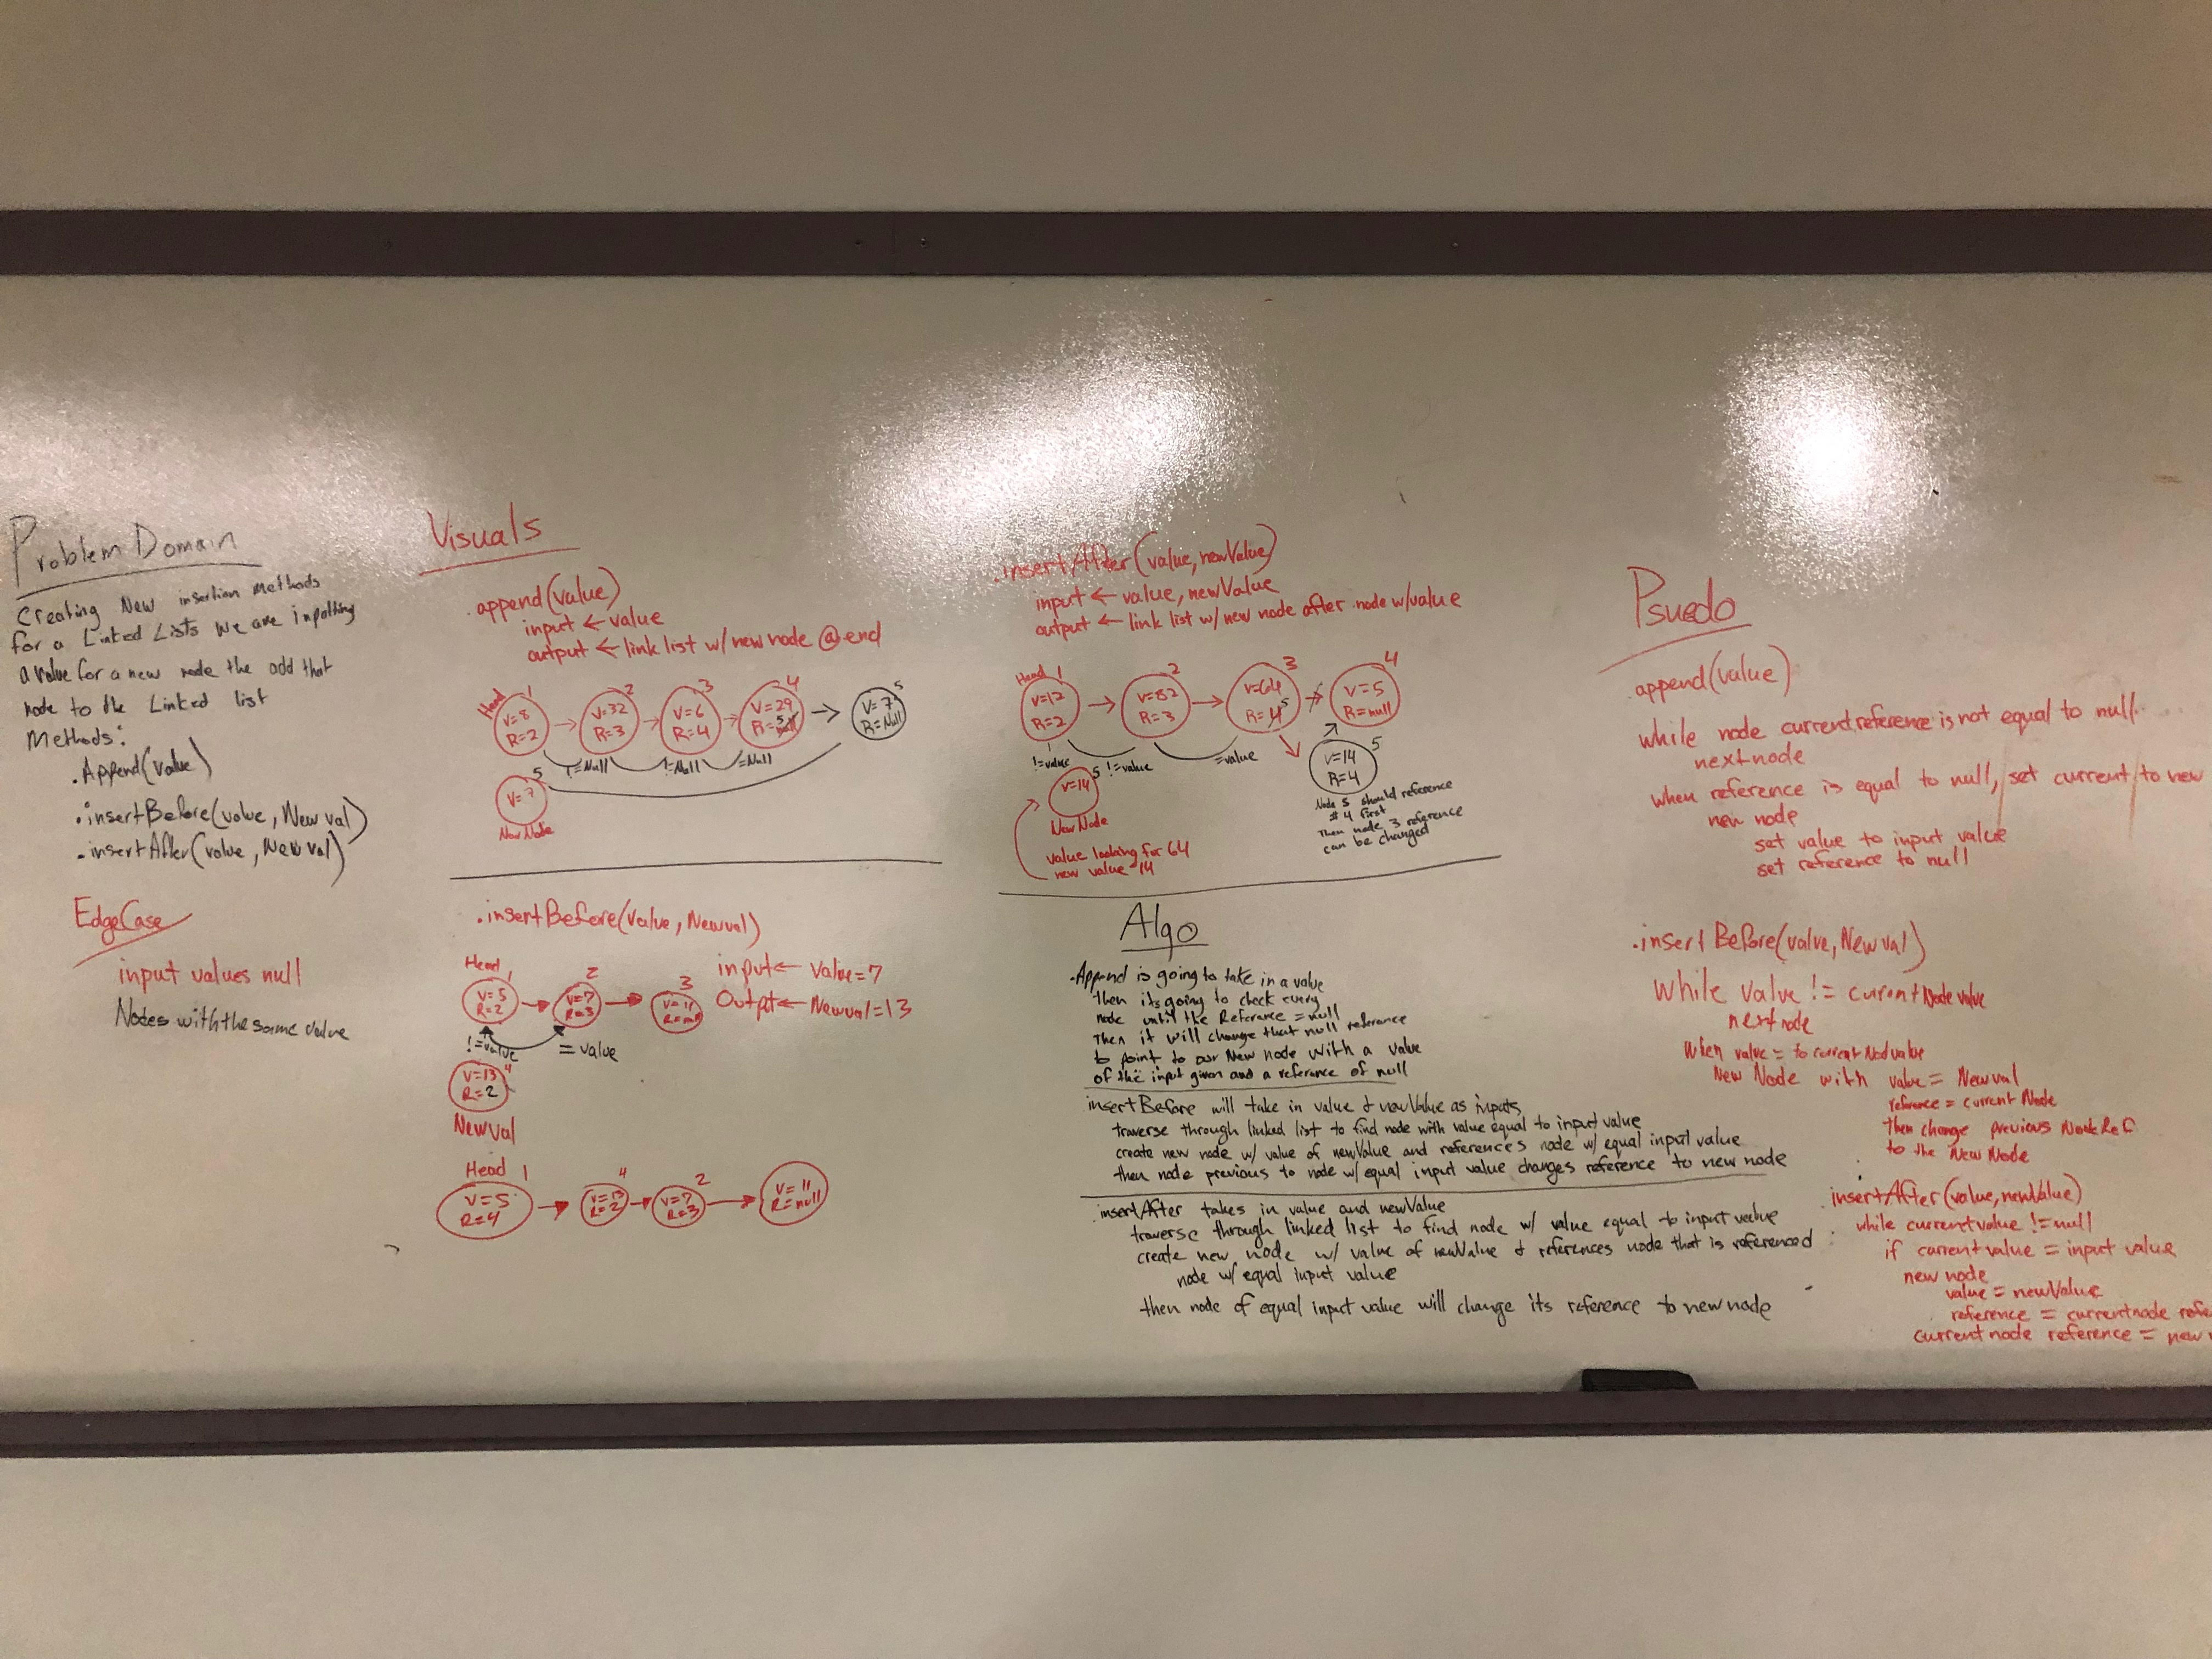 Problem Domain
Creating New insertion methods
for a Linked Lists we are inputting
a value for a new node the add that
node to the Linked list
Methods:
.Append(value)
.insertBefore(value, New val)
.insertAfter(value, New val)
EdgeCase
input values null
Nodes with the same value
Visuals
.append(value)
input ← value
output ← link list w/ new node @ end
Head
1
2
3
4
5
V=8
R=2
V=32
R=3
V=6
R=4
V=29
R=5
V=7
R=Null
!=Null
!=Null
=Null
5
V=7
New Node
.insertBefore(value, Newval)
input ← Value=7
Output ← Newval=13
Head
1
2
3
V=5
R=2
V=7
R=3
V=11
R=null
!=value
= value
4
V=13
R=2
NewVal
Head
1
4
2
V=5
R=4
V=13
R=2
V=7
R=3
V=11
R=null
.insertAfter(value, newValue)
input ← value, newValue
output ← link list w/ new node after node w/value
Head
1
2
3
4
V=12
R=2
V=82
R=3
V=64
R=4 5
V=5
R=null
!=value
!=value
=value
5
V=14
R=4
5
V=14
New Node
value looking for 64
new value 14
Node 5 should reference
# 4 first
Then node 3 reference
can be changed
Algo
.Append is going to take in a value
then its going to check every
node until the Reference = null
Then it will change that null reference
to point to our New node with a value
of the input given and a reference of null
insertBefore will take in value & newValue as inputs
traverse through linked list to find node with value equal to input value
create new node w/ value of newValue and references node w/ equal input value
then node previous to node w/ equal input value changes reference to new node
.insertAfter takes in value and newValue
traverse through linked list to find node w/ value equal to input value
create new node w/ value of newValue & references node that is referenced
node w/ equal input value
then node of equal input value will change its reference to new node
Psuedo
.append(value)
while node current reference is not equal to null
next node
when reference is equal to null, set current to new
new node
set value to input value
set reference to null
.insertBefore(value, New val)
While value != current Node value
next node
When value = to current Nod value
New Node with value = Newval
reference = current Node
then change previous Node Ref
to the New Node
.insertAfter(value, newValue)
while current value != null
if current value = input value
new node
value = newValue
reference = current node refe
current node reference = new